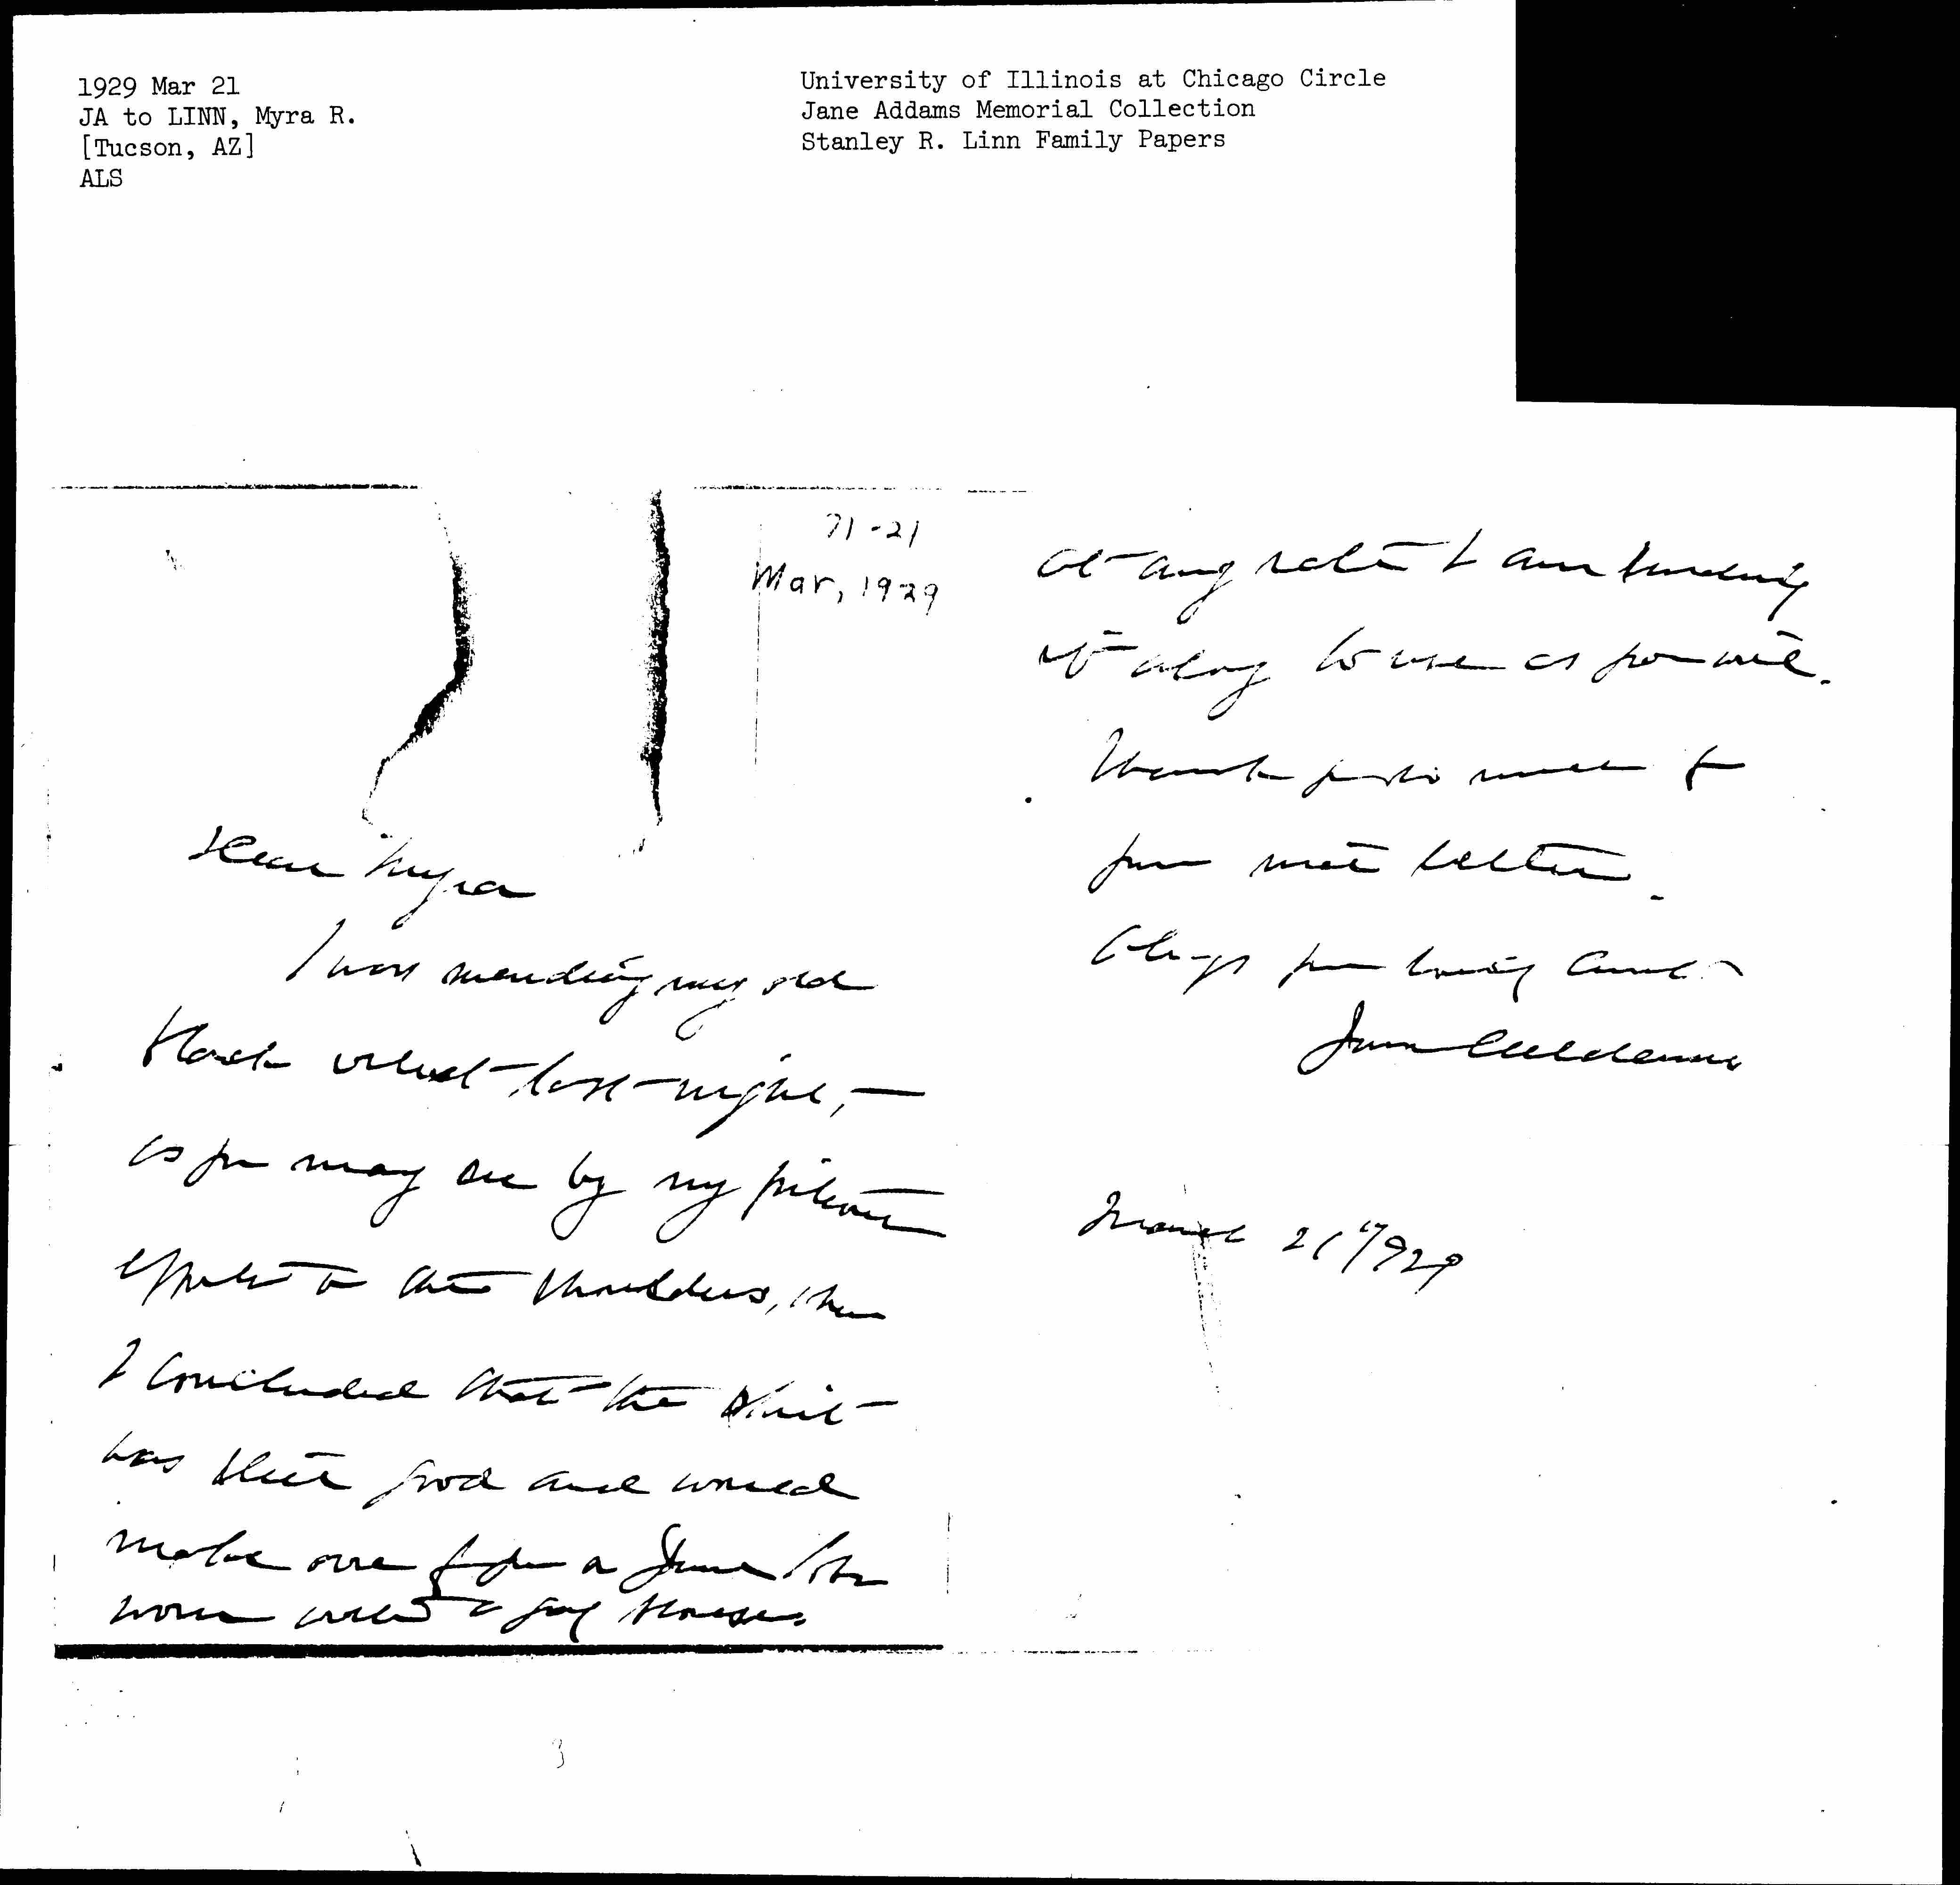 1929 Mar 21
JA to LINN, Myra R.
[Tucson, AZ]
ALS
University of Illinois at Chicago Circle
Jane Addams Memorial Collection
Stanley R. Linn Family Papers
71-21
Mar, 1929
Dear Myra
I was mending my old
black velvet last night, —
as you may see by my
efforts on the shoulders, when
I concluded that the skirt
was still good and would
make one for you or Jane to be
worn with a gay blouse.
At any rate I am sending
it along to use as you will.
Thank you so much for
your nice letter.
Always your loving Aunt
Jane Addams
March 21" 1929
3